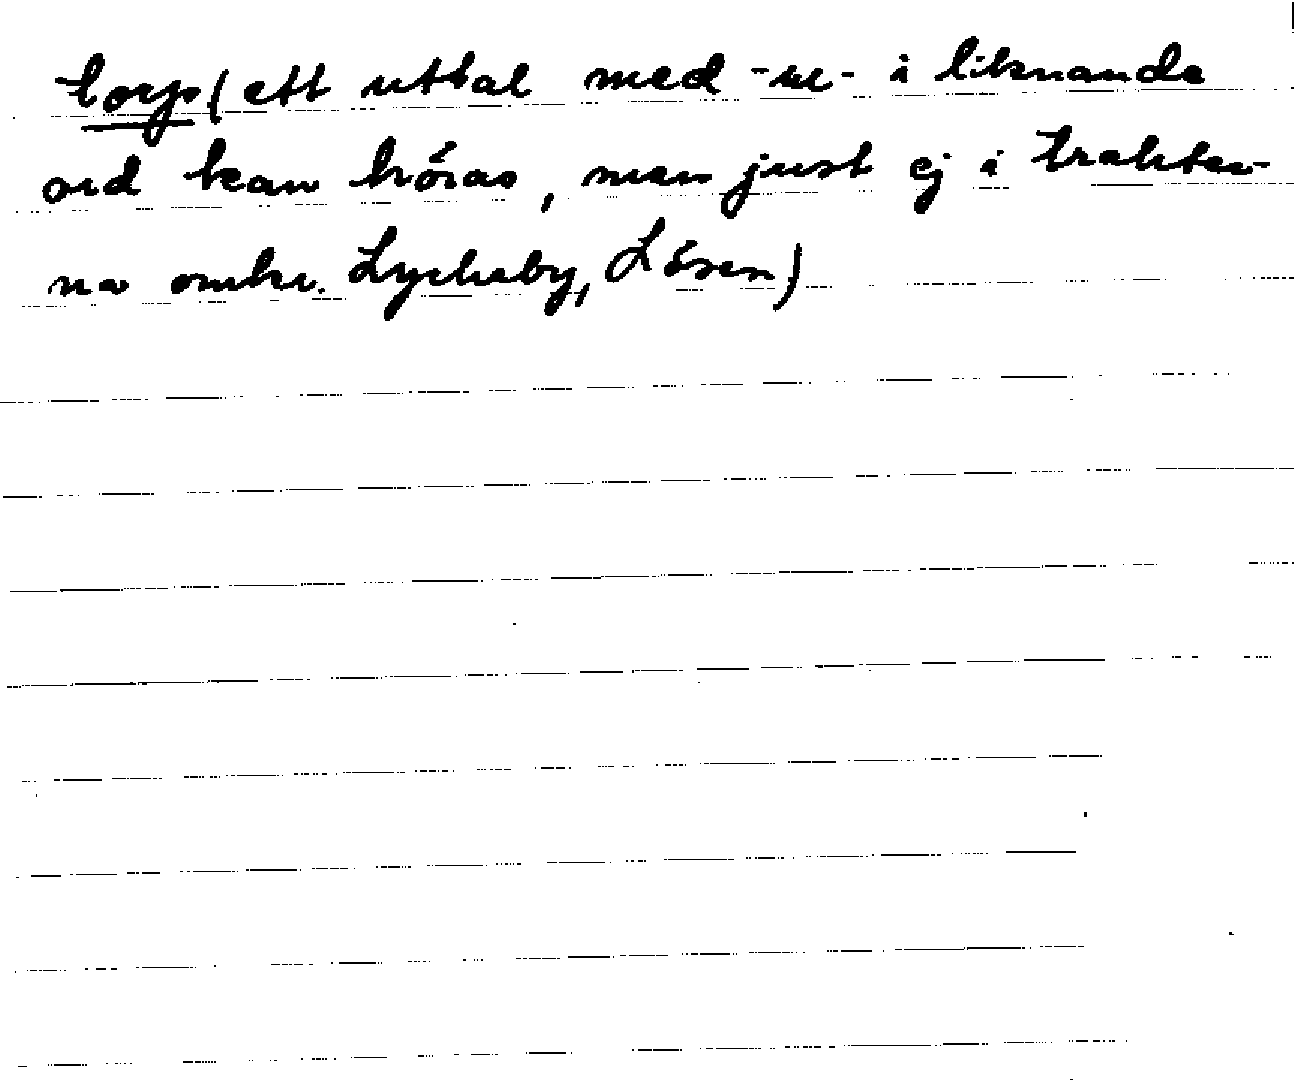 torp (ett uttal med -u- i liknande
ord kan höras, men just ej i trakter-
na omkr. Lyckeby, Lösen)